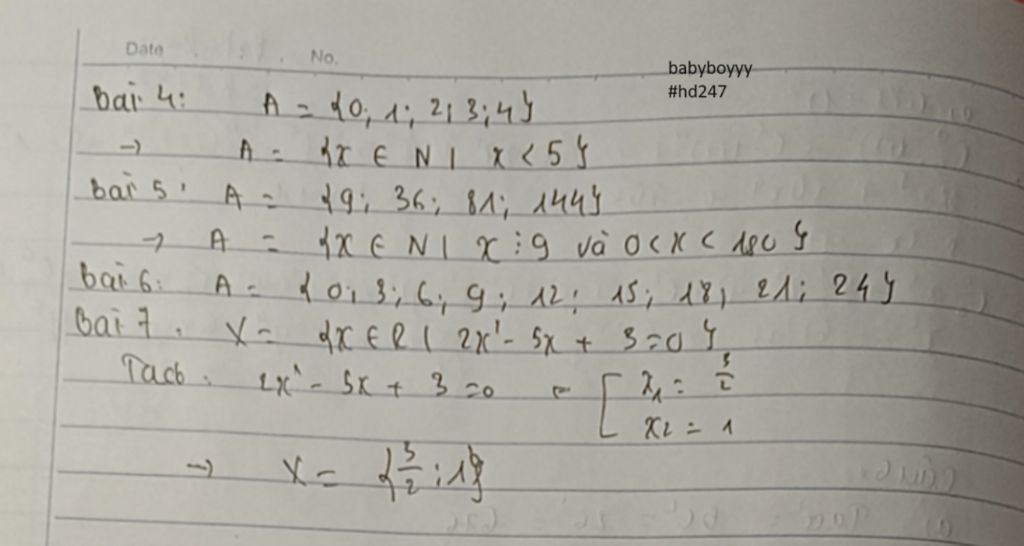 Date No.
babyboyyy
#hd247
Bài 4: A = {0; 1; 2; 3; 4}
→ A = {x ∈ N | x < 5}
Bài 5: A = {9; 36; 81; 144}
→ A = {x ∈ N | x ⋮ 9 và 0 < x < 180}
Bài 6: A = {0; 3; 6; 9; 12; 15; 18; 21; 24}
Bài 7. X = {x ∈ R | 2x² - 5x + 3 = 0}
Ta có: 2x² - 5x + 3 = 0 ⇔ [ x₁ = 3/2
x₂ = 1
→ X = {3/2; 1}